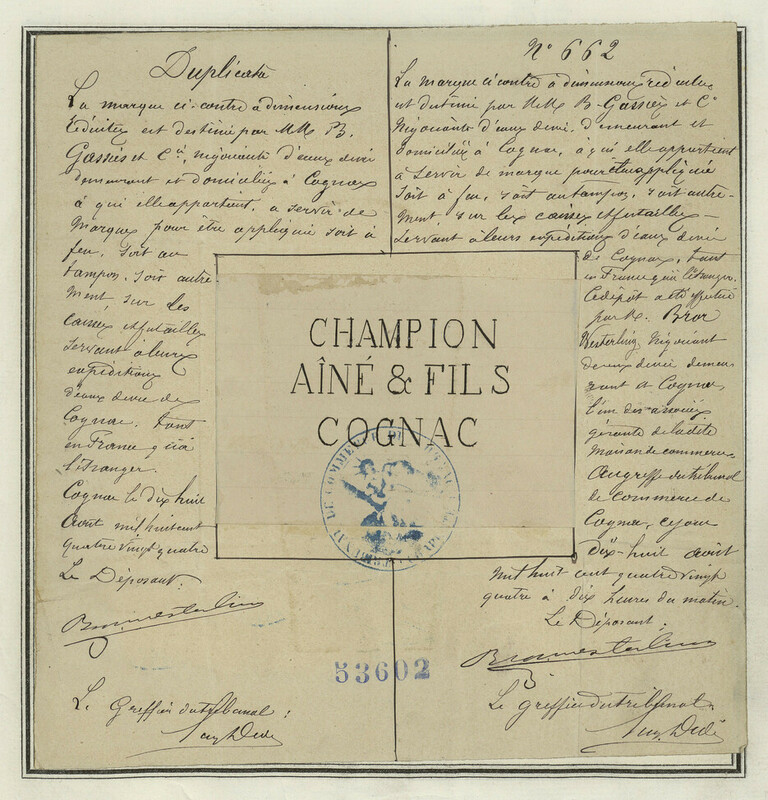 Duplicata
La marque ci-contre à dimensions
réduites est destiné par MM. B.
Gassiès et Cie, négociants d'eaux de vie
demeurant et domiciliés à Cognac
à qui elle appartient, a servir de
Marque pour être appliqué soit à
feu, soit au
tampon, soit autre
Ment, sur les
caisses et futailles
servant à leurs
expéditions
d'eaux de vie de
Cognac, tant
en France qu'à
l'étranger.
Cognac le dix huit
Août mil huit cent
quatre vingt quatre
Le Déposant:
Le Greffier du tribunal:
No 662
La Marque ci contre à dimensions réduites
est destiné par MM. B. Gassiès et Cie
Négociants d'eaux de vie, demeurant et
domiciliés à Cognac, à qui elle appartient
a servir de marque pour être appliqué
soit à feu, soit au tampon, soit autre-
Ment, sur les caisses et futailles
servant à leurs expéditions d'eaux de vie
de Cognac, tant
en France qu'à l'étranger.
Ce dépôt a été effectué
par M. Bror
Westerling Négociant
d'eaux de vie demeu
rant à Cognac
l'un des associés
gérants de la dite
Maison de commerce
Au greffe du tribunal
de commerce de
Cognac, ce jour
dix-huit août
mil huit cent quatre vingt
quatre à dix heures du matin.
Le Déposant:
Le greffier du tribunal
CHAMPION
AÎNÉ & FILS
COGNAC
53602